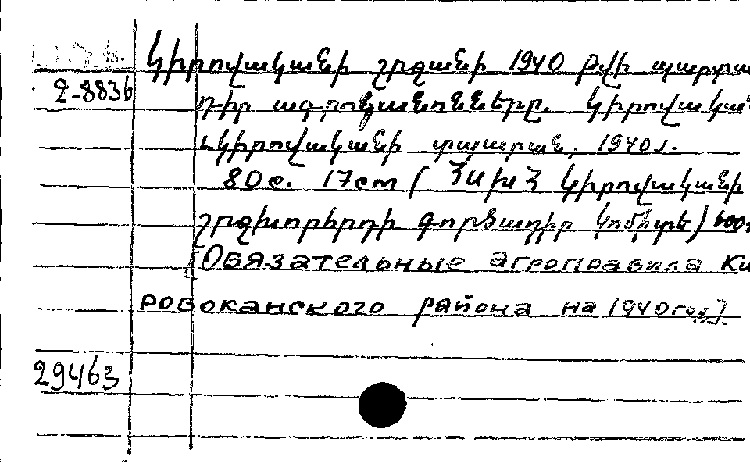 Կիրովականի շրջանի 1940 թվի պարտա
2-8836
դիր ագրոկանոնները. Կիրովական
Կիրովականի տպարան, 1940 г.
80 с. 17 cm ( ՀԱԽՀ Կիրովականի
շրջխորհրդի գործադիր կոմիտե)
[Обязательные агроправила Ки
ровоканского района на 1940 год]
29463